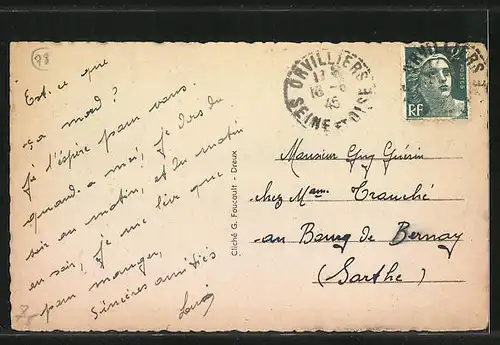 78
Est-ce que
ça mord?
Je l'espère pour vous.
quand à moi, je dors du
soir au matin, et du matin
au soir, je me lève que
pour manger,
Sincères amitiés
Cliché G. Foucault - Dreux
ORVILLIERS
17
18 - 8
45
SEINE ET OISE
ORVILLIERS
RF
POSTES
Monsieur Guy Guérin
chez Mam. Tranché
au Bourg de Bernay
(Sarthe)